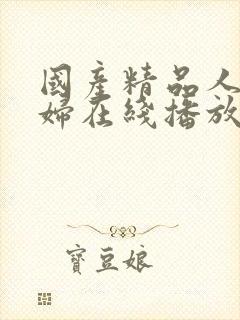 國產精品人
婦在綫播放
寶豆娘